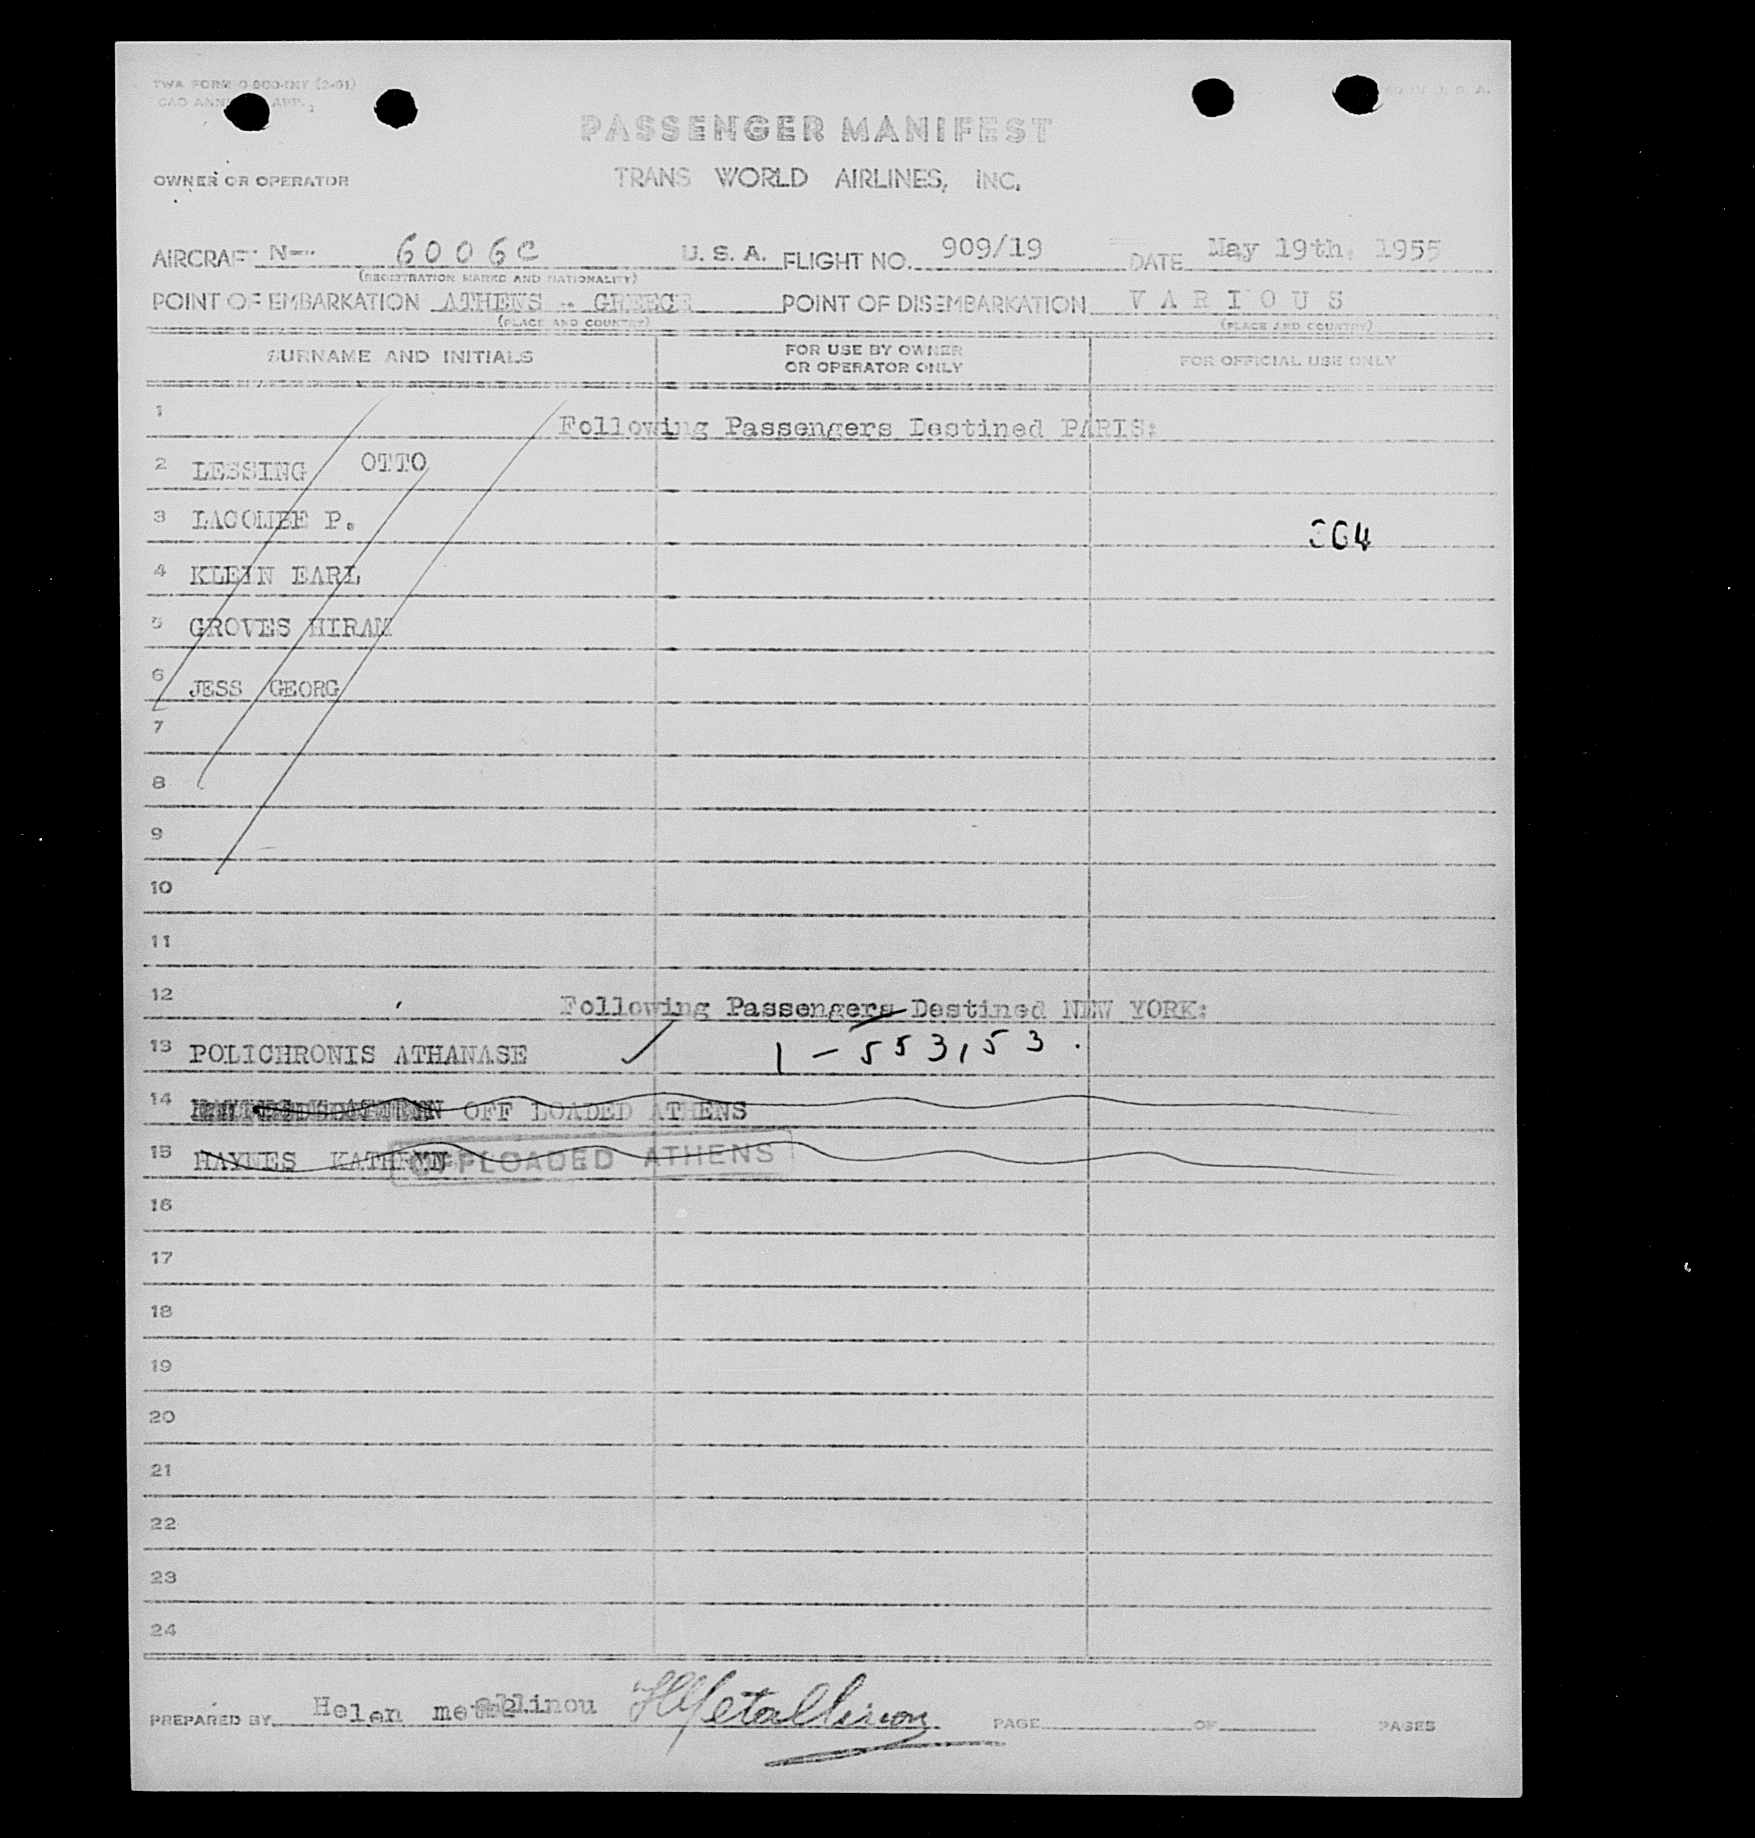 PASSENGER MANIFEST
OWNER OR OPERATOR TRANS WORLD AIRLINES, INC.
AIRCRAFT N-- 6006C U. S. A. FLIGHT NO. 909/19 DATE May 19th. 1955
(REGISTRATION MARKS AND NATIONALITY)
POINT OF EMBARKATION ATHENS -- GREECE POINT OF DISEMBARKATION V A R I O U S
(PLACE AND COUNTRY) (PLACE AND COUNTRY)
SURNAME AND INITIALS FOR USE BY OWNER OR OPERATOR ONLY FOR OFFICIAL USE ONLY
1 Following Passengers Destined PARIS:
2 LESSING OTTO
3 LACOMBE P.
4 KLEIN EARL
5 GROVES HIRAM
6 JESS GEORG
7
8
9
10
11
12 Following Passengers Destined NEW YORK:
13 POLICHRONIS ATHANASE 1-553153.
14 OFF LOADED ATHENS
15 HAYNES KATHRYN OFFLOADED ATHENS
16
17
18
19
20
21
22
23
24
PREPARED BY Helen metallinou HMetallinou PAGE OF PAGES